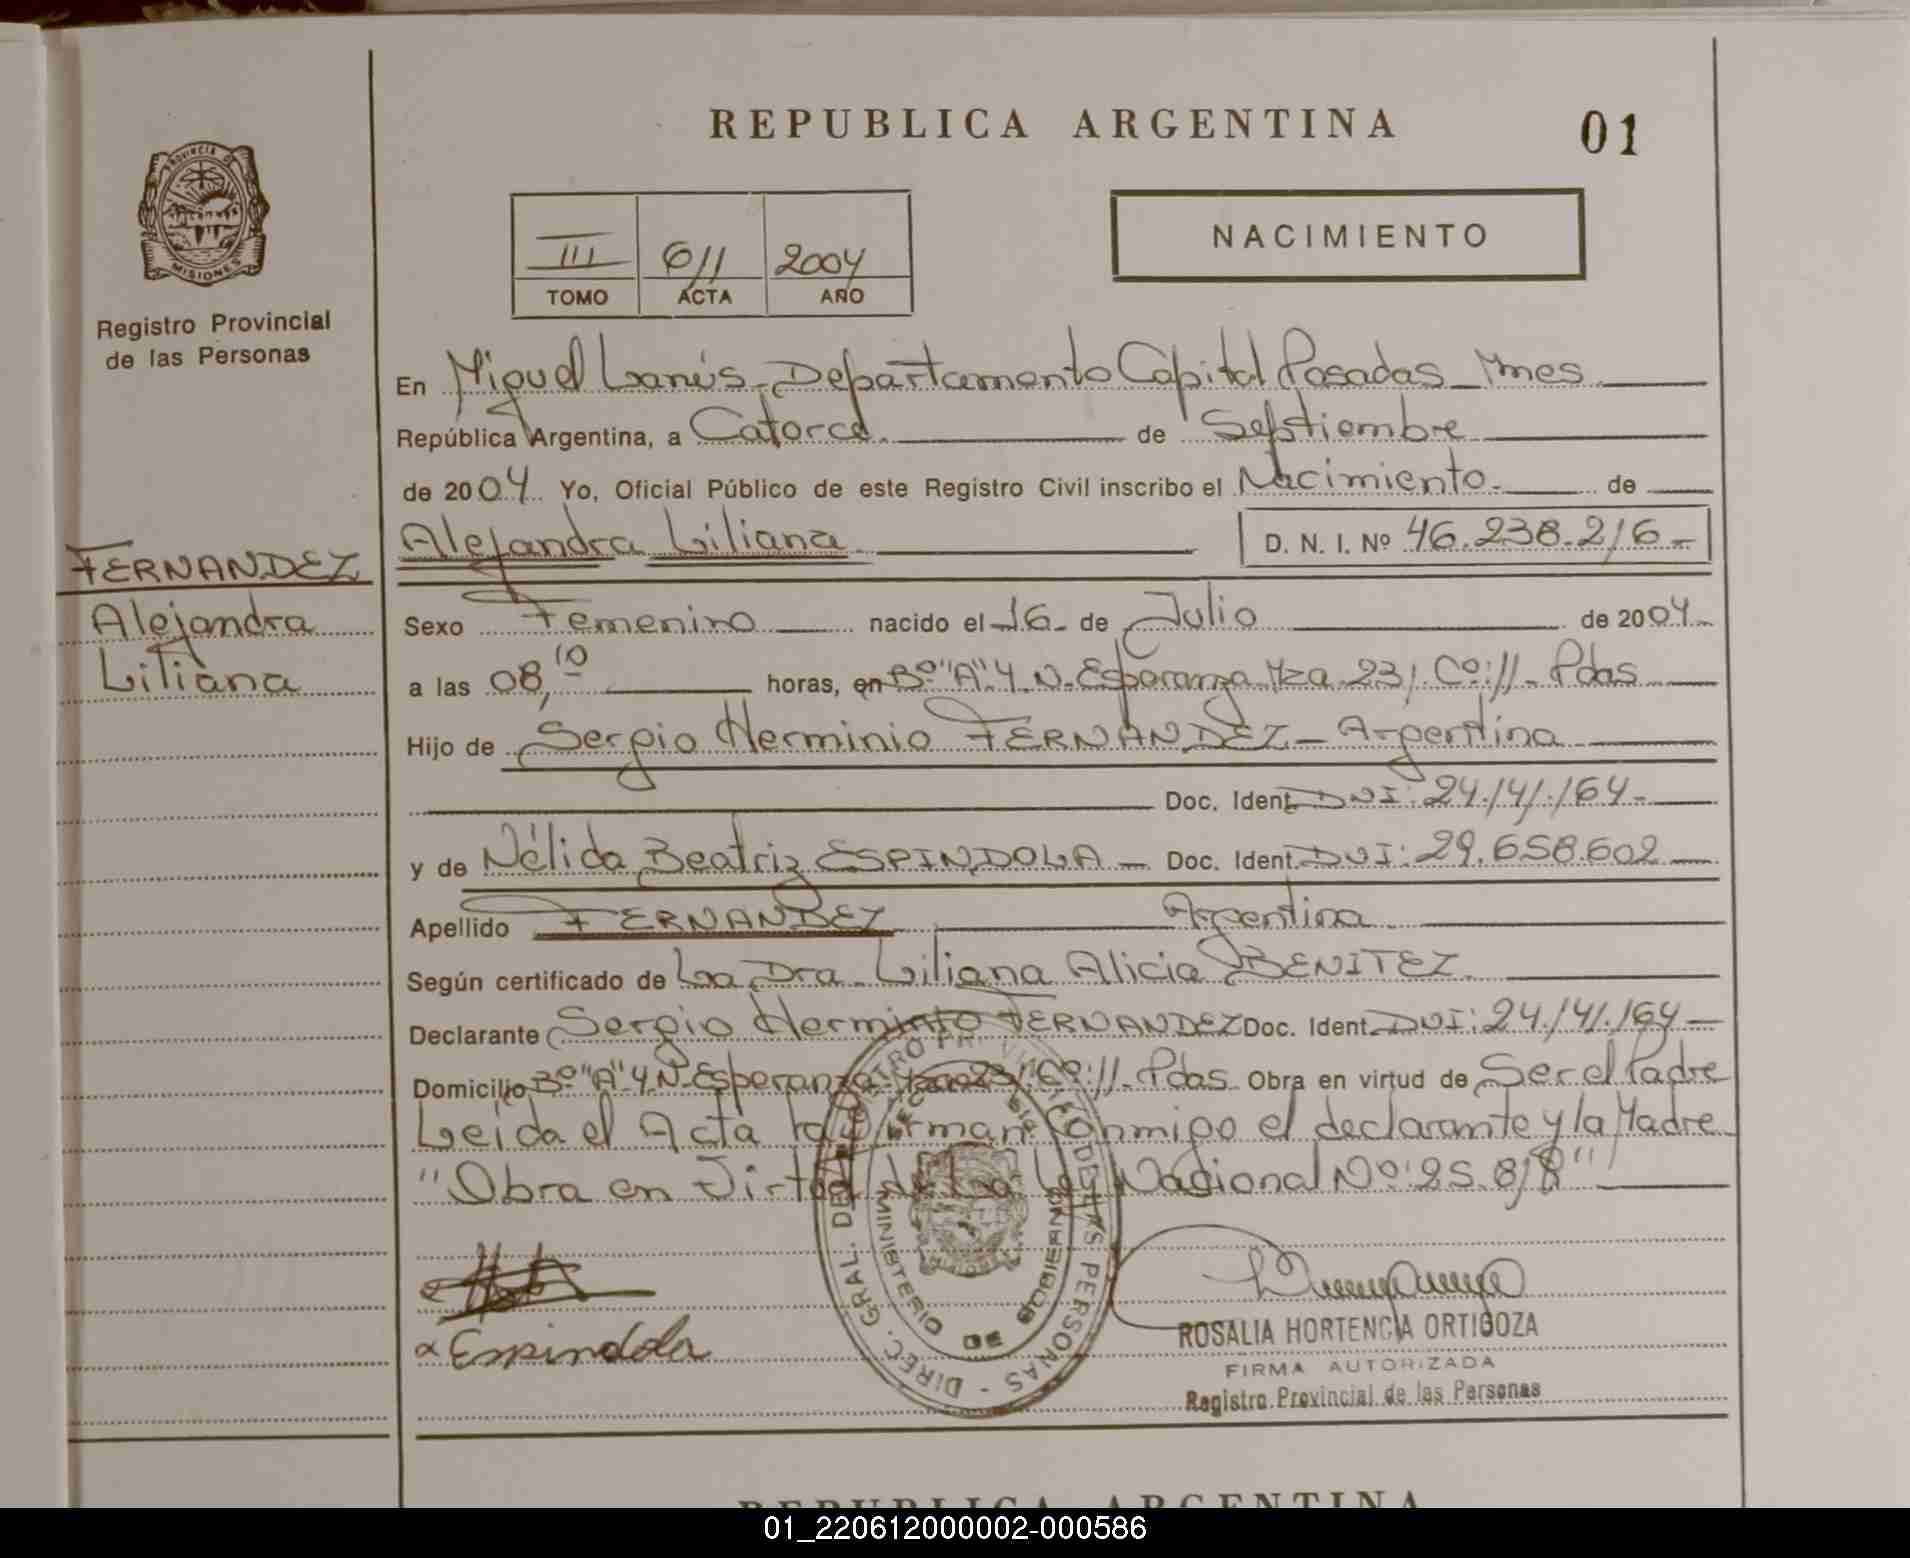 REPUBLICA ARGENTINA
01
PROVINCIA DE
MISIONES
Registro Provincial
de las Personas
III 611 2004
TOMO ACTA AÑO
NACIMIENTO
En Miguel Lanús - Departamento Capital Posadas - Mnes
República Argentina, a Catorce de Septiembre
de 2004 Yo, Oficial Público de este Registro Civil inscribo el Nacimiento de
Alejandra Liliana D. N. I. Nº 46.238.216-
FERNANDEZ
Alejandra
Liliana
Sexo Femenino nacido el 16 de Julio de 2004
a las 08,10 horas, en Bº "A" 4 N. Esperanza Mza 23/ Cº:11 - Pdas
Hijo de Sergio Herminio FERNANDEZ - Argentina
Doc. Ident. DNI: 24.141.164-
y de Nélida Beatriz ESPINDOLA - Doc. Ident. DNI: 29.658.602
Apellido FERNANDEZ Argentina
Según certificado de La Dra. Liliana Alicia BENITEZ
Declarante Sergio Herminio FERNANDEZ Doc. Ident. DNI: 24.141.164-
Domicilio Bº "A" 4 N. Esperanza Mza 23/ Cº:11 - Pdas Obra en virtud de Ser el Padre
Leida el Acta la firman conmigo el declarante y la Madre
"Obra en Virtud de La Ley Nacional Nº: 25.818"
Espindola
DIREC. GRAL. DEL REGISTRO PROVINCIAL DE LAS PERSONAS
MINISTERIO DE GOBIERNO
ROSALIA HORTENCIA ORTIGOZA
FIRMA AUTORIZADA
Registro Provincial de las Personas
REPUBLICA ARGENTINA
01_220612000002-000586